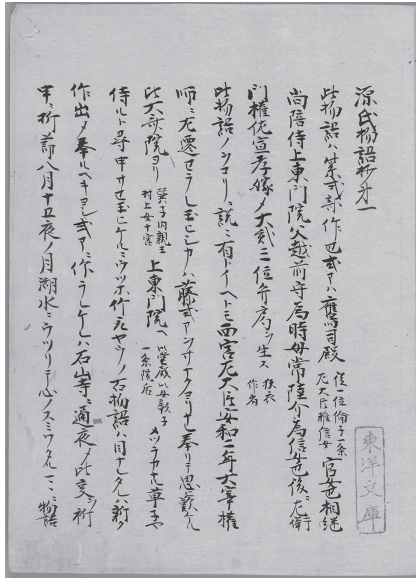 源氏物語抄第一
此物語ハ紫式部作也式部ハ鷹司殿 従一位倫子一条左大臣雅信女 官女也相継
尚陪侍上東門院父越前守為時母常陸介為信女也後ニ左衛
門権佐宣孝嫁メ大貳三位弁局ヲ生ス 狭衣作者
此物語ノヲコリニ説ニ有トイヘトモ西宮左大臣安和二年大宰権
師ニ左遷セラレ玉ヒシカハ藤式部ヲサナクヨリ 奉リテ思歎
比大斎院ヨリ 選子内親王村上女十宮 上東門院ヘ 一条院后 メツラカナル草子ヤ
侍ルト尋申サセ玉ヒケルニウツホ竹取ヤウノ古物語ハ目ナレタレハ新ク
作出メ奉ルヘキヨシ式部ニ作ラレケレハ石山寺ニ通夜メ此支ヲ祈
申ニ折節八月十五夜ノ月湖水ニウツリテ心ノスミワタル 物語
東洋文庫